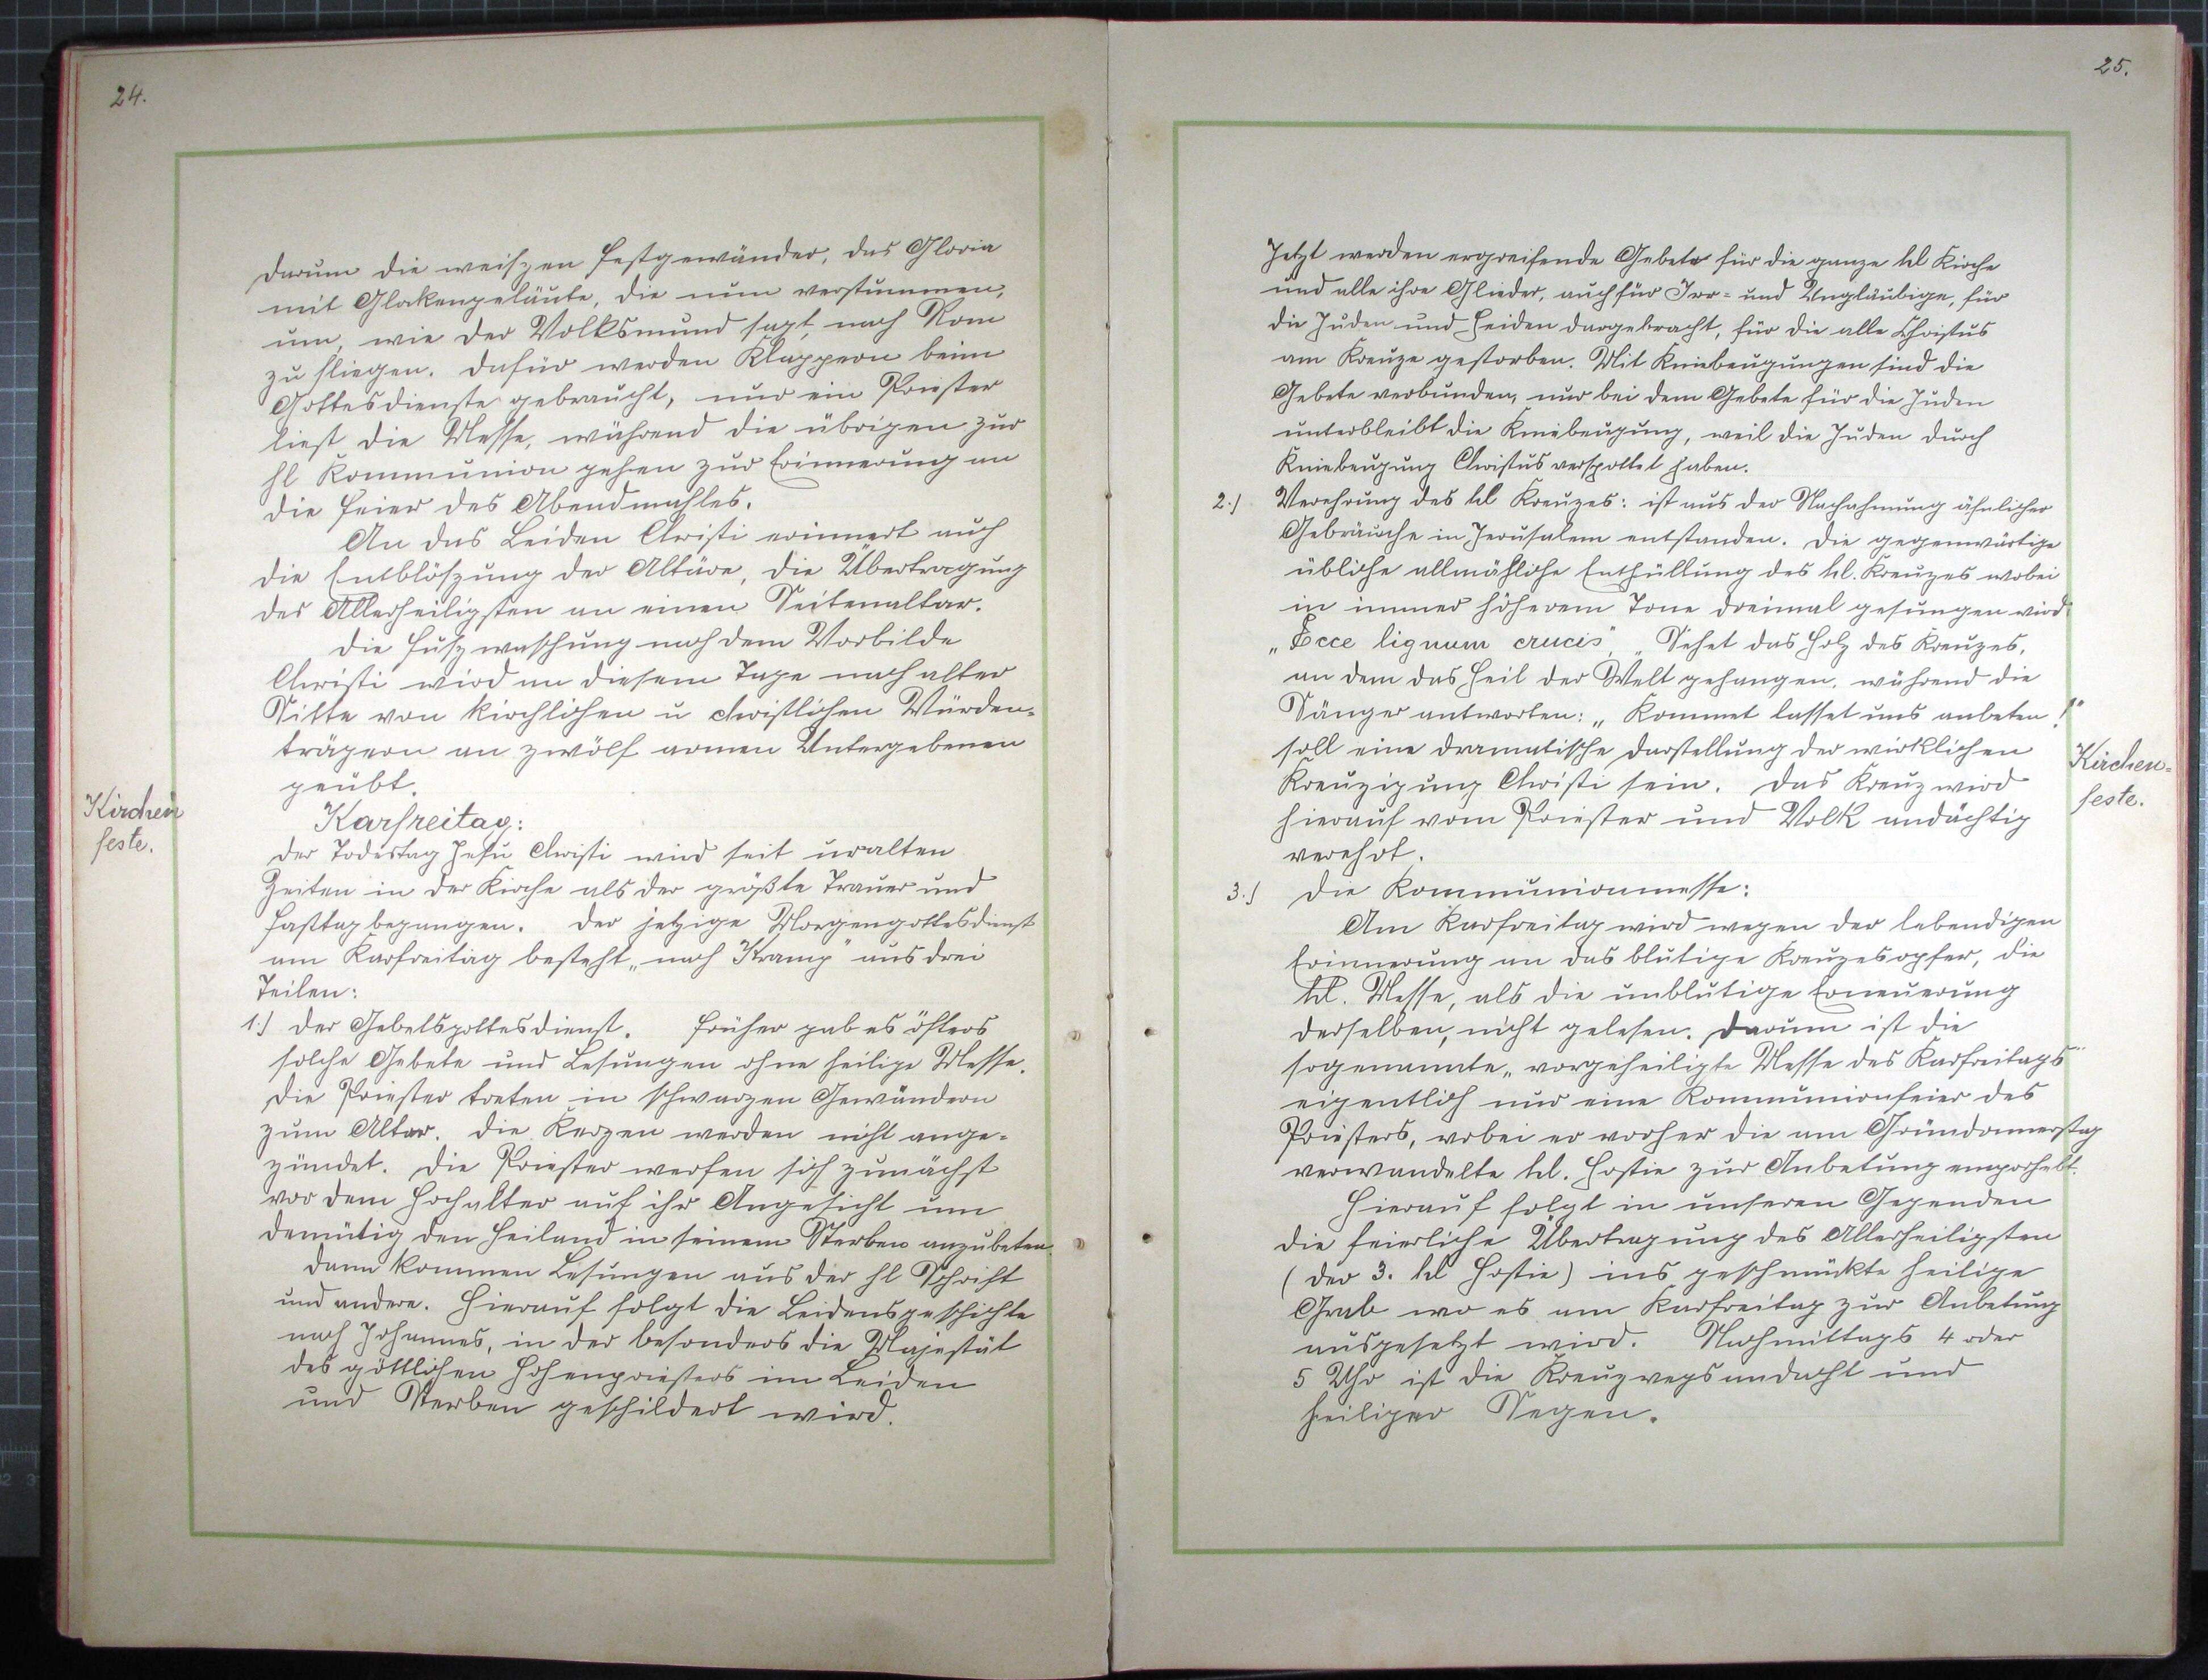 24.
darum die weiszen Festgewänder, das Gloria
mit Glockengeläute, die nun verstummen,
um, wie der Volksmund sagt, nach Rom
zu fliegen. Dafür werden Klappern beim
Gottesdienste gebraucht, nur ein Priester
liest die Messe, während die übrigen zur
hl Kommunion gehen zur Erinnerung an
die Feier des Abendmahles.
An das Leiden Christi erinnert auch
die Entblöszung der Altäre, die Übertragung
des Allerheiligsten an einen Seitenaltar.
Die Fuszwaschung nach dem Vorbilde
Christi wird an diesem Tage nach alter
Sitte von kirchlichen u christlichen Würden-
trägern an zwölf armen Untergebenen
geübt.
Kirchen
feste.
Karfreitag:
Der Todestag Jesu Christi wird seit uralten
Zeiten in der Kirche als der größte Trauer und
Fasttag begangen. Der jetzige Morgengottesdienst
am Karfreitag besteht „nach Kramp" aus drei
Teilen:
1.) Der Gebetsgottesdienst. Früher gab es öfters
solche Gebete und Lesungen ohne heilige Messe.
Die Priester treten in schwarzen Gewändern
zum Altar. Die Kerzen werden nicht ange-
zündet. Die Priester werfen sich zunächst
vor dem Hochalter auf ihr Angesicht um
demütig den Heiland in seinem Sterben anzubeten.
Dann kommen Lesungen aus der hl Schrift
und andere. Hierauf folgt die Leidensgeschichte
nach Johannes, in der besonders die Majestät
des göttlichen Hohenpriesters im Leiden
und Sterben geschildert wird.
25.
Jetzt werden ergreifende Gebete für die ganze hl Kirche
und alle ihre Glieder, auch für Irr- und Ungläubige, für
die Juden und Heiden dargebracht, für die alle Christus
am Kreuze gestorben. Mit Kniebeugungen sind die
Gebete verbunden, nur bei dem Gebete für die Juden
unterbleibt die Kniebeugung, weil die Juden durch
Kniebeugung Christus verspottet haben.
2.) Verehrung des hl Kreuzes: ist aus der Nachahmung ähnlicher
Gebräuche in Jerusalem entstanden. Die gegenwärtige
übliche allmähliche Enthüllung des hl. Kreuzes wobei
in immer höherem Tone dreimal gesungen wird
„Ecce lignum crucis", „Sehet das Holz des Kreuzes,
an dem das Heil der Welt gehangen, während die
Sänger antworten: „Kommet lasset uns anbeten!"
soll eine dramatische Darstellung der wirklichen
Kreuzigung Christi sein. Das Kreuz wird
hierauf vom Priester und Volk andächtig
verehrt.
Kirchen-
feste.
3.) Die Kommunionmesse:
Am Karfreitag wird wegen der lebendigen
Erinnerung an das blutige Kreuzesopfer, die
hl. Messe, als die unblutige Erneuerung
derselben, nicht gelesen. Darum ist die
sogenannte „vorgeheiligte Messe des Karfreitags"
eigentlich nur eine Kommunionfeier des
Priesters, wobei er vorher die am Gründonnerstag
verwandelte hl. Hostie zur Anbetung emporhebt.
Hierauf folgt in unseren Gegenden
die feierliche Übertragung des Allerheiligsten
(der 3. hl Hostie) ins geschmückte heilige
Grab wo es am Karfreitag zur Anbetung
ausgesetzt wird. Nachmittags 4 oder
5 Uhr ist die Kreuzwegsandacht und
heiliger Segen.